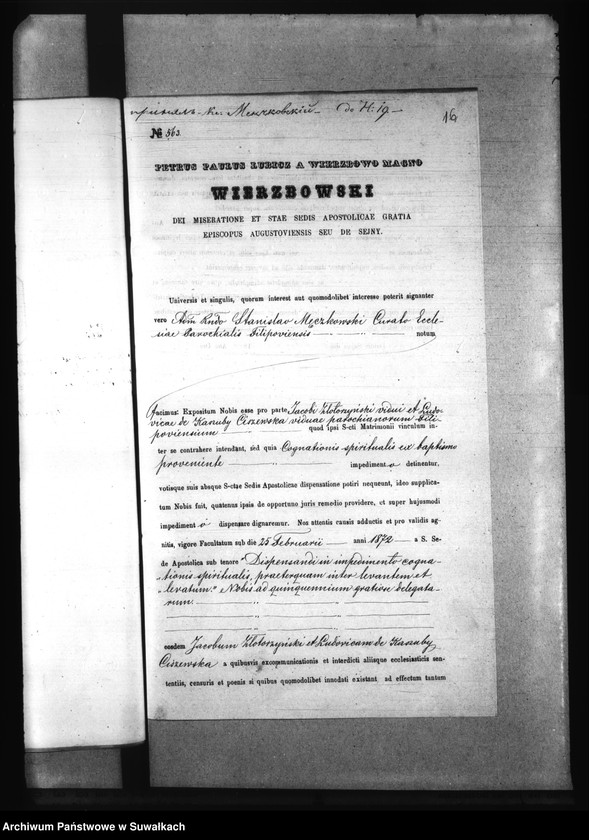 Кс. Мечковскій do N: 19 16
№ 563.
PETRUS PAULUS LUBICZ A WIERZBOWO MAGNO
WIERZBOWSKI
DEI MISERATIONE ET STAE SEDIS APOSTOLICAE GRATIA
EPISCOPUS AUGUSTOVIENSIS SEU DE SEJNY.
Universis et singulis, quorum interest aut quomodolibet interesse poterit signanter
vero Adm Rndo Stanislao Męczkowski Curato Eccle-
siae Parochialis Filipoviensis notum
facimus: Expositum Nobis esse pro parte Jacobi Złotorzyński vidui et Ludo-
vicae de Kanuby Ciszewska viduae parochianorum Fili-
poviensium quod ipsi S-cti Matrimonii vinculum in-
ter se contrahere intendant, sed quia Cognationis spiritualis ex baptismo
proveniente impediment o detinentur,
votisque suis absque S-ctae Sedis Apostolicae dispensatione potiri nequeunt, ideo supplica-
tum Nobis fuit, quatenus ipsis de opportuno juris remedio providere, et super hujusmodi
impediment o dispensare dignaremur. Nos attentis causis adductis et pro validis ag-
nitis, vigore Facultatum sub die 25 Februarii anni 1872 a S. Se-
de Apostolica sub tenore "Dispensandi in impedimento cogna-
tionis spiritualis, praeterquam inter levantem et
levatum." Nobis ad quinquennium gratiose delegata-
rum.
eosdem Jacobum Złotorzyński et Ludovicam de Kanuby
Ciszewska a quibusvis excommunicationis et interdicti aliisque ecclesiasticis sen-
tentiis, censuris et poenis si quibus quomodolibet innodati existant ad effectum tantum
Archiwum Państwowe w Suwałkach